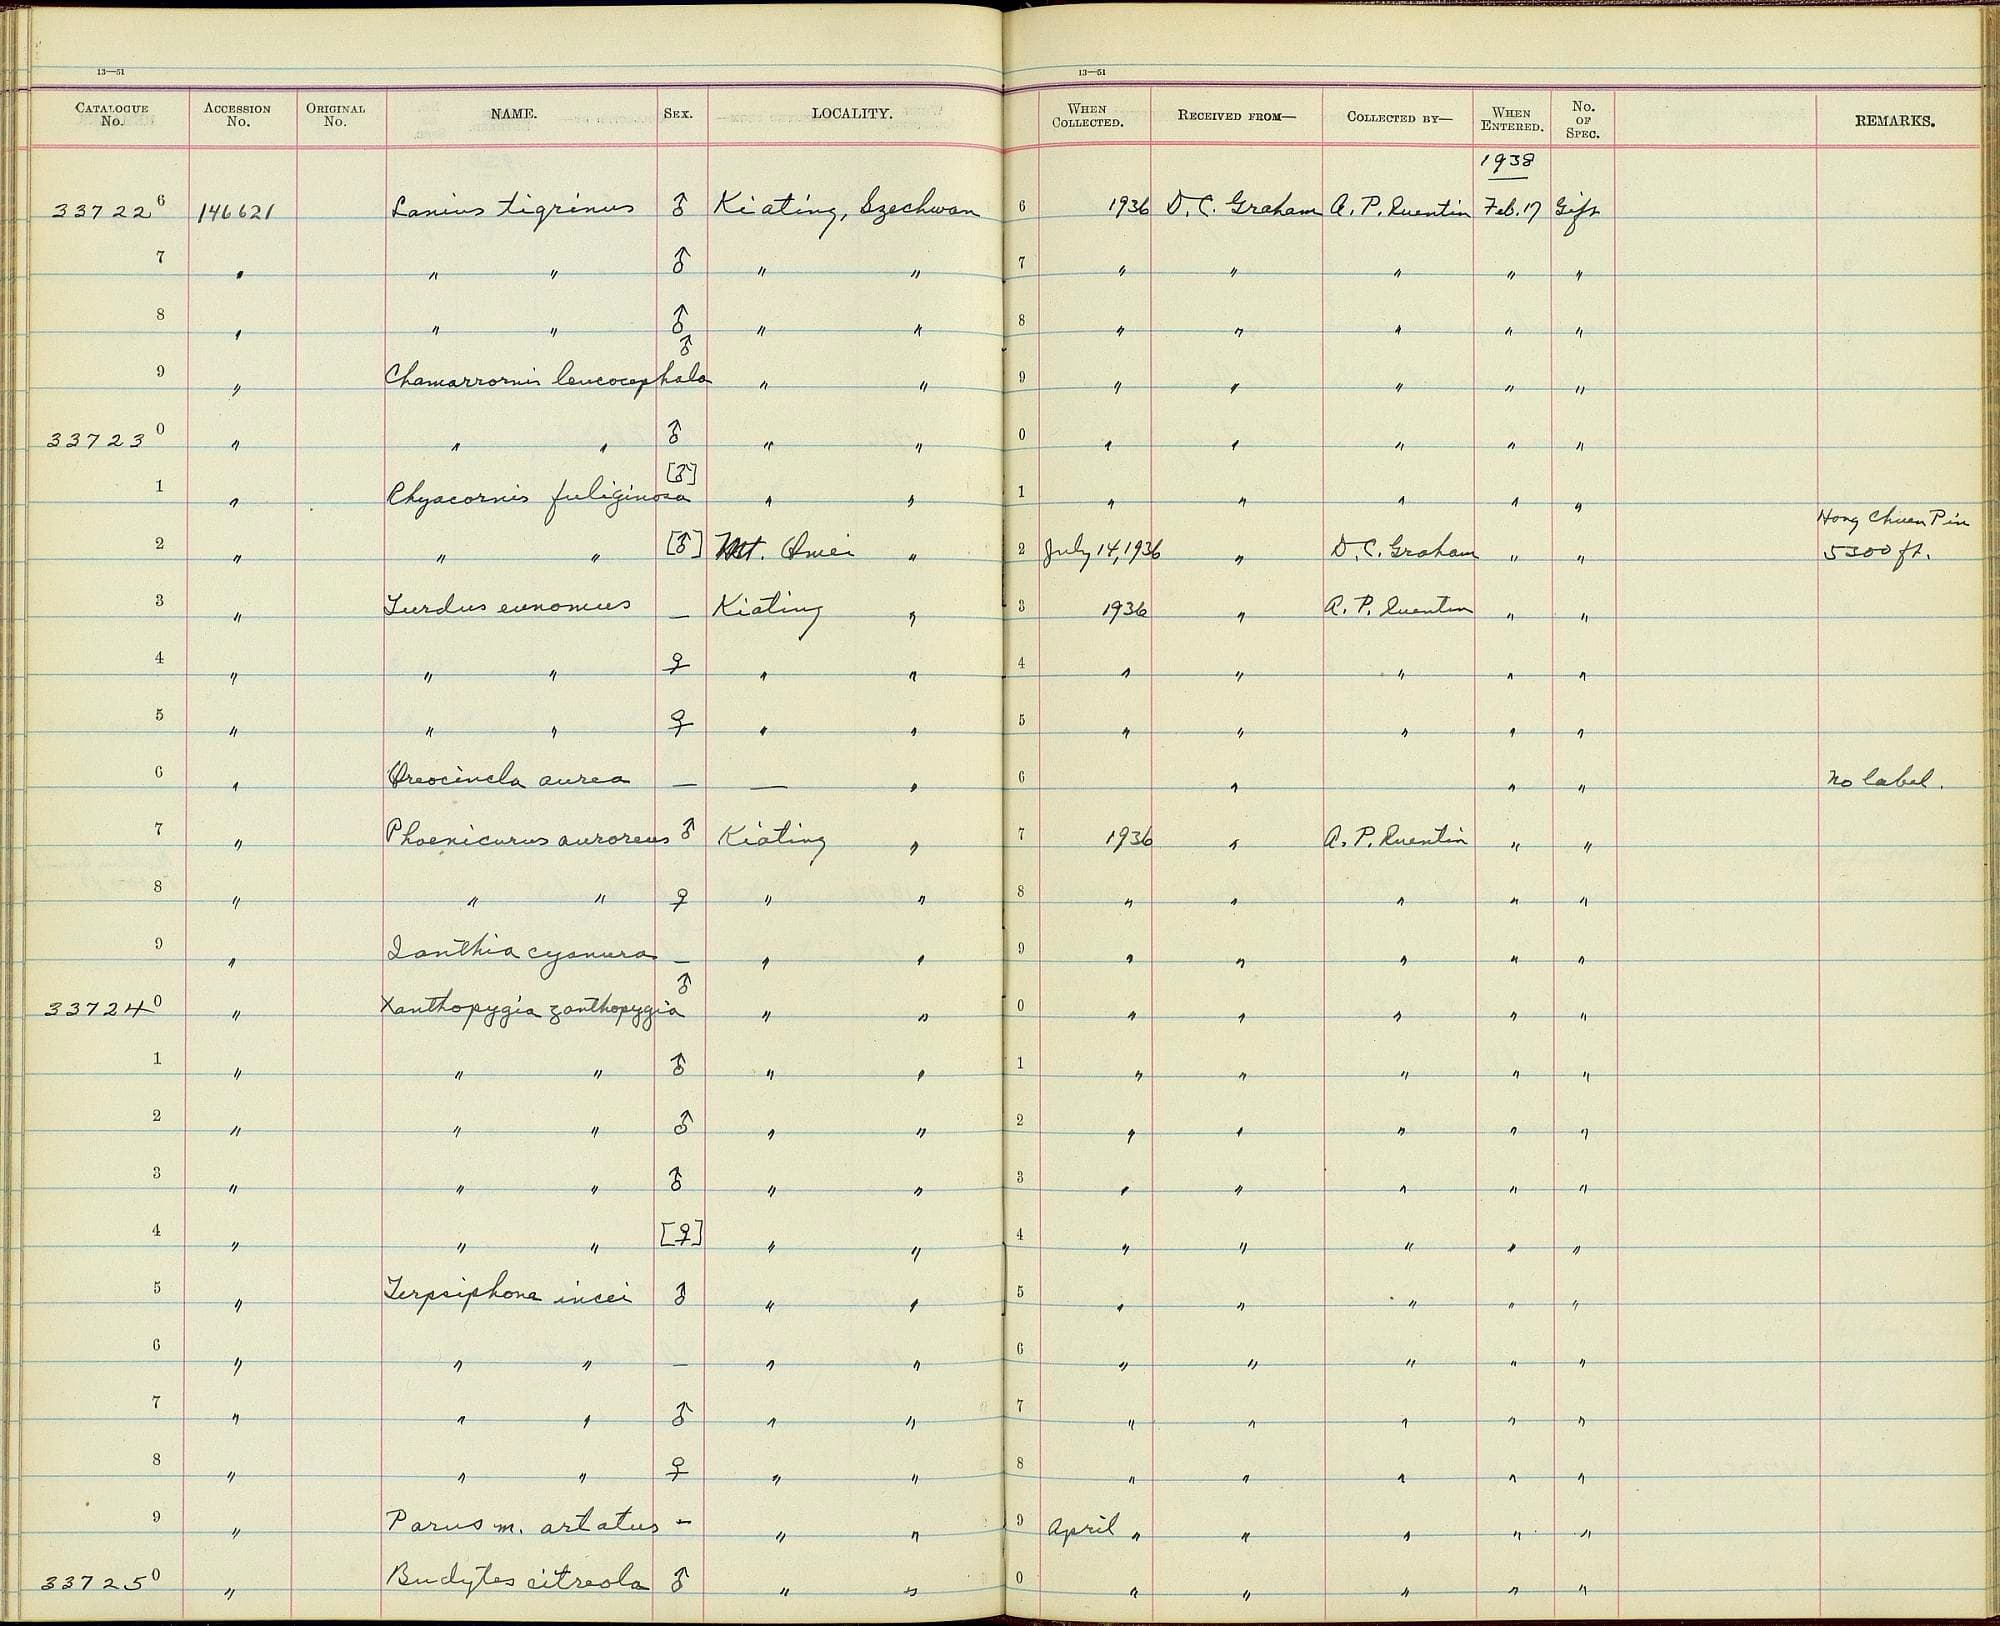 13—51 13—51
CATALOGUE No. ACCESSION No. ORIGINAL No. NAME. SEX. LOCALITY. WHEN COLLECTED. RECEIVED FROM— COLLECTED BY— WHEN ENTERED. No. OF SPEC. REMARKS.
1938
33722 6 146621 Lanius tigrinus ♂ Kiating, Szechwan 6 1936 D. C. Graham A. P. Quentin Feb. 17 Gift
7 " " " ♂ " " 7 " " " " "
8 " " " ♂ " " 8 " " " " "
9 " Chamarrornis leucocephala ♂ " " 9 " " " " "
33723 0 " " " ♂ " " 0 " " " " "
1 " Rhyacornis fuliginosa [♂] " " 1 " " " " "
2 " " " [♂] Mt. Omei " 2 July 14, 1936 " D. C. Graham " " Hong Chuen Pin 5300 ft.
3 " Turdus eunomus — Kiating " 3 1936 " A. P. Quentin " "
4 " " " ♀ " " 4 " " " " "
5 " " " ♀ " " 5 " " " " "
6 " Oreocincla aurea — — " 6 " " " No label.
7 " Phoenicurus auroreus ♂ Kiating " 7 1936 " A. P. Quentin " "
8 " " " ♀ " " 8 " " " " "
9 " Ianthia cyanura — " " 9 " " " " "
33724 0 " Xanthopygia zanthopygia ♂ " " 0 " " " " "
1 " " " ♂ " " 1 " " " " "
2 " " " ♂ " " 2 " " " " "
3 " " " ♂ " " 3 " " " " "
4 " " " [♀] " " 4 " " " " "
5 " Terpsiphone incei ♂ " " 5 " " " " "
6 " " " — " " 6 " " " " "
7 " " " ♂ " " 7 " " " " "
8 " " " ♀ " " 8 " " " " "
9 " Parus m. artatus — " " 9 April " " " " "
33725 0 " Budytes citreola ♂ " " 0 " " " " "